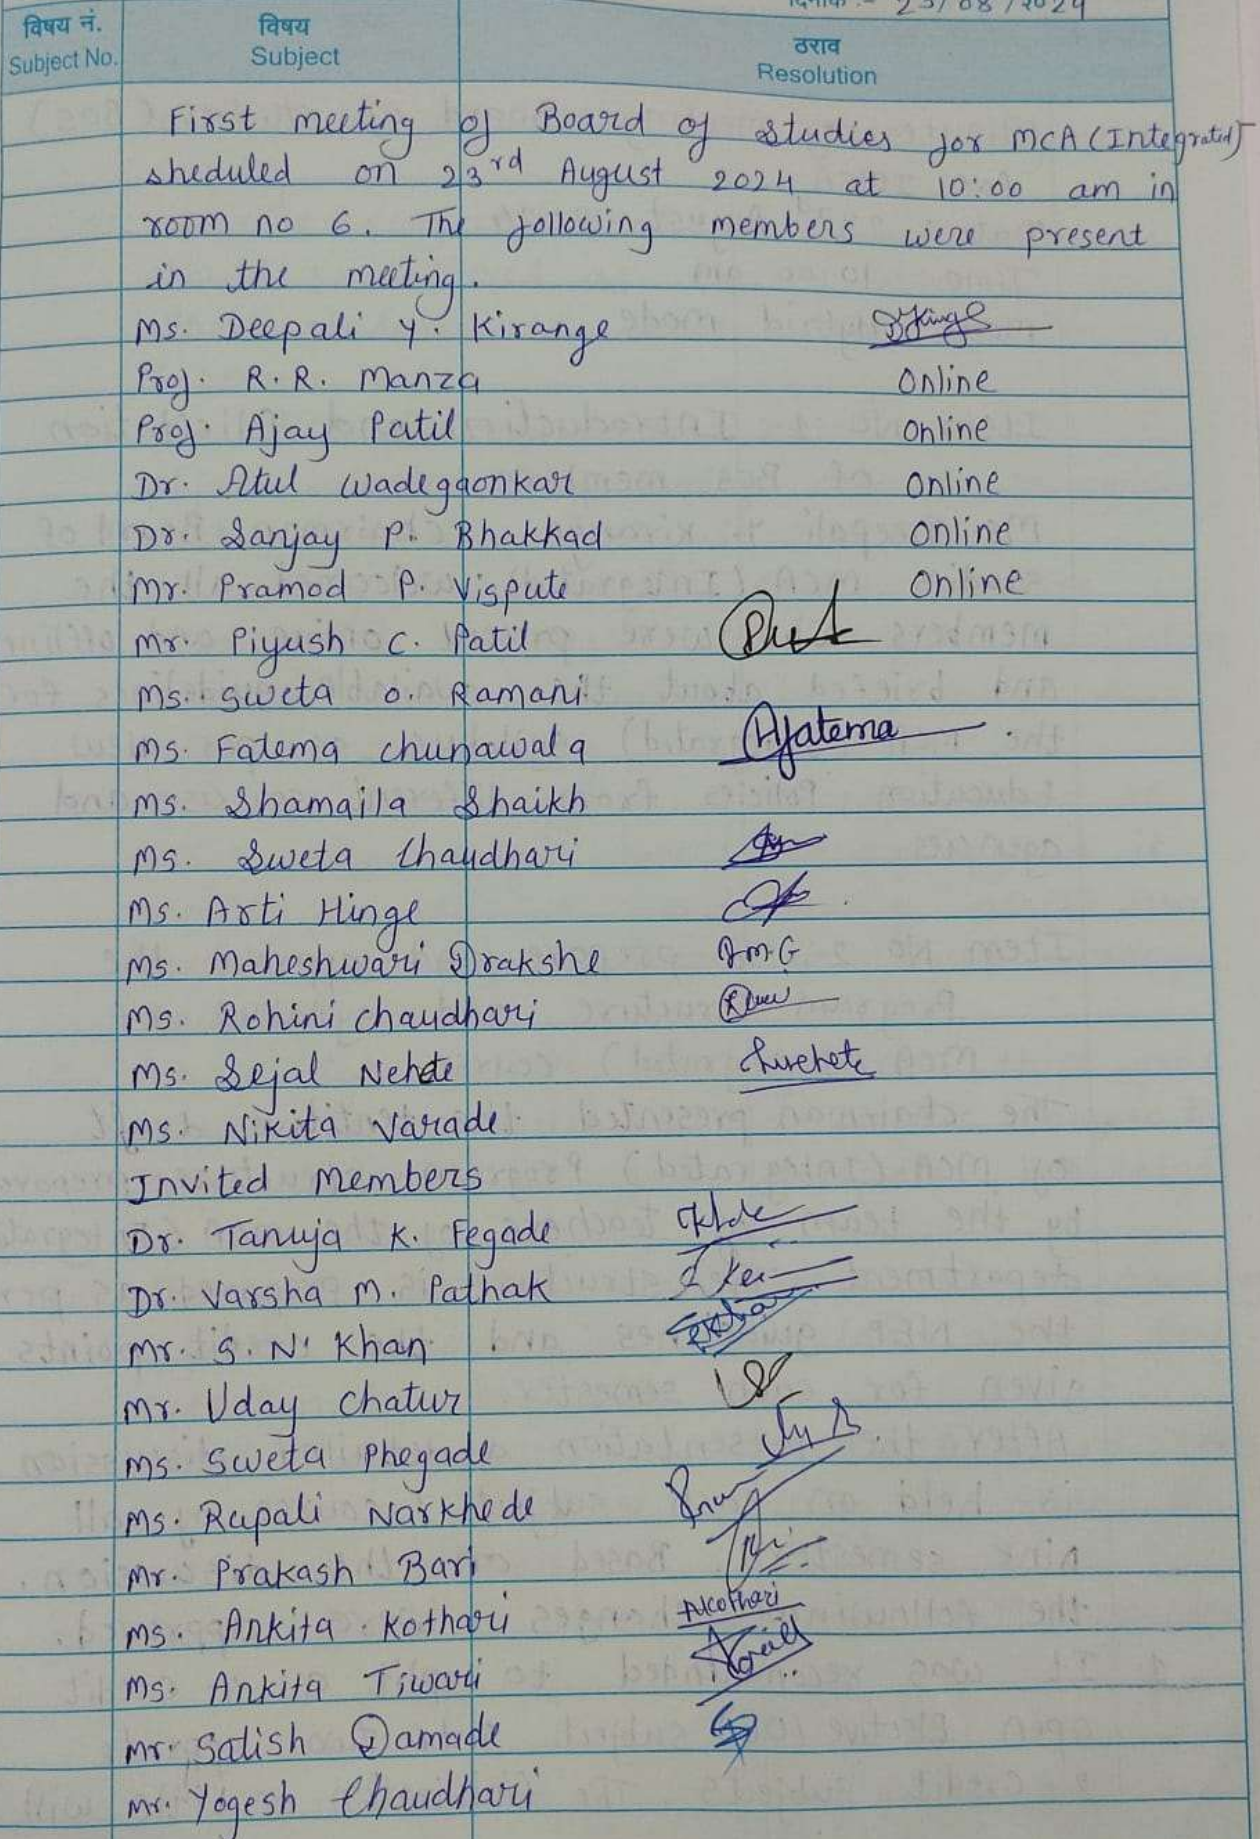 दिनांक :- 23/08/2024
विषय नं.
Subject No.
विषय
Subject
ठराव
Resolution
First meeting of Board of Studies for MCA (Integrated)
sheduled on 23rd August 2024 at 10:00 am in
room no 6. The following members were present
in the meeting.
Ms. Deepali Y. Kirange
Prof. R.R. Manza Online
Prof. Ajay Patil Online
Dr. Atul Wadegaonkar Online
Dr. Sanjay P. Bhakkad Online
Mr. Pramod P. Vispute Online
Mr. Piyush C. Patil
Ms. Sweta O. Ramani
Ms. Fatema Chunawala Hfatema
Ms. Shamaila Shaikh
Ms. Sweta Chaudhari
Ms. Arti Hinge
Ms. Maheshwari Drakshe
Ms. Rohini Chaudhari
Ms. Sejal Nehete
Ms. Nikita Varade
Invited Members
Dr. Tanuja K. Fegade
Dr. Varsha M. Pathak
Mr. S. N. Khan
Mr. Uday Chatur
Ms. Sweta Phegade
Ms. Rupali Narkhede
Mr. Prakash Bari
Ms. Ankita Kothari AKothari
Ms. Ankita Tiwari
Mr. Satish Damade
Mr. Yogesh Chaudhari